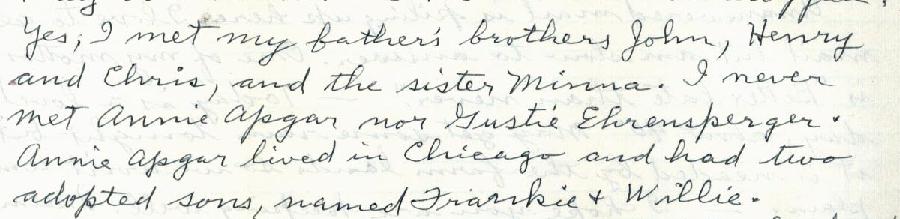 Yes, I met my father's brothers John, Henry
and Chris, and the sister Minna. I never
met Annie Apgar nor Gustie Ehrensperger.
Annie Apgar lived in Chicago and had two
adopted sons, named Frankie & Willie.